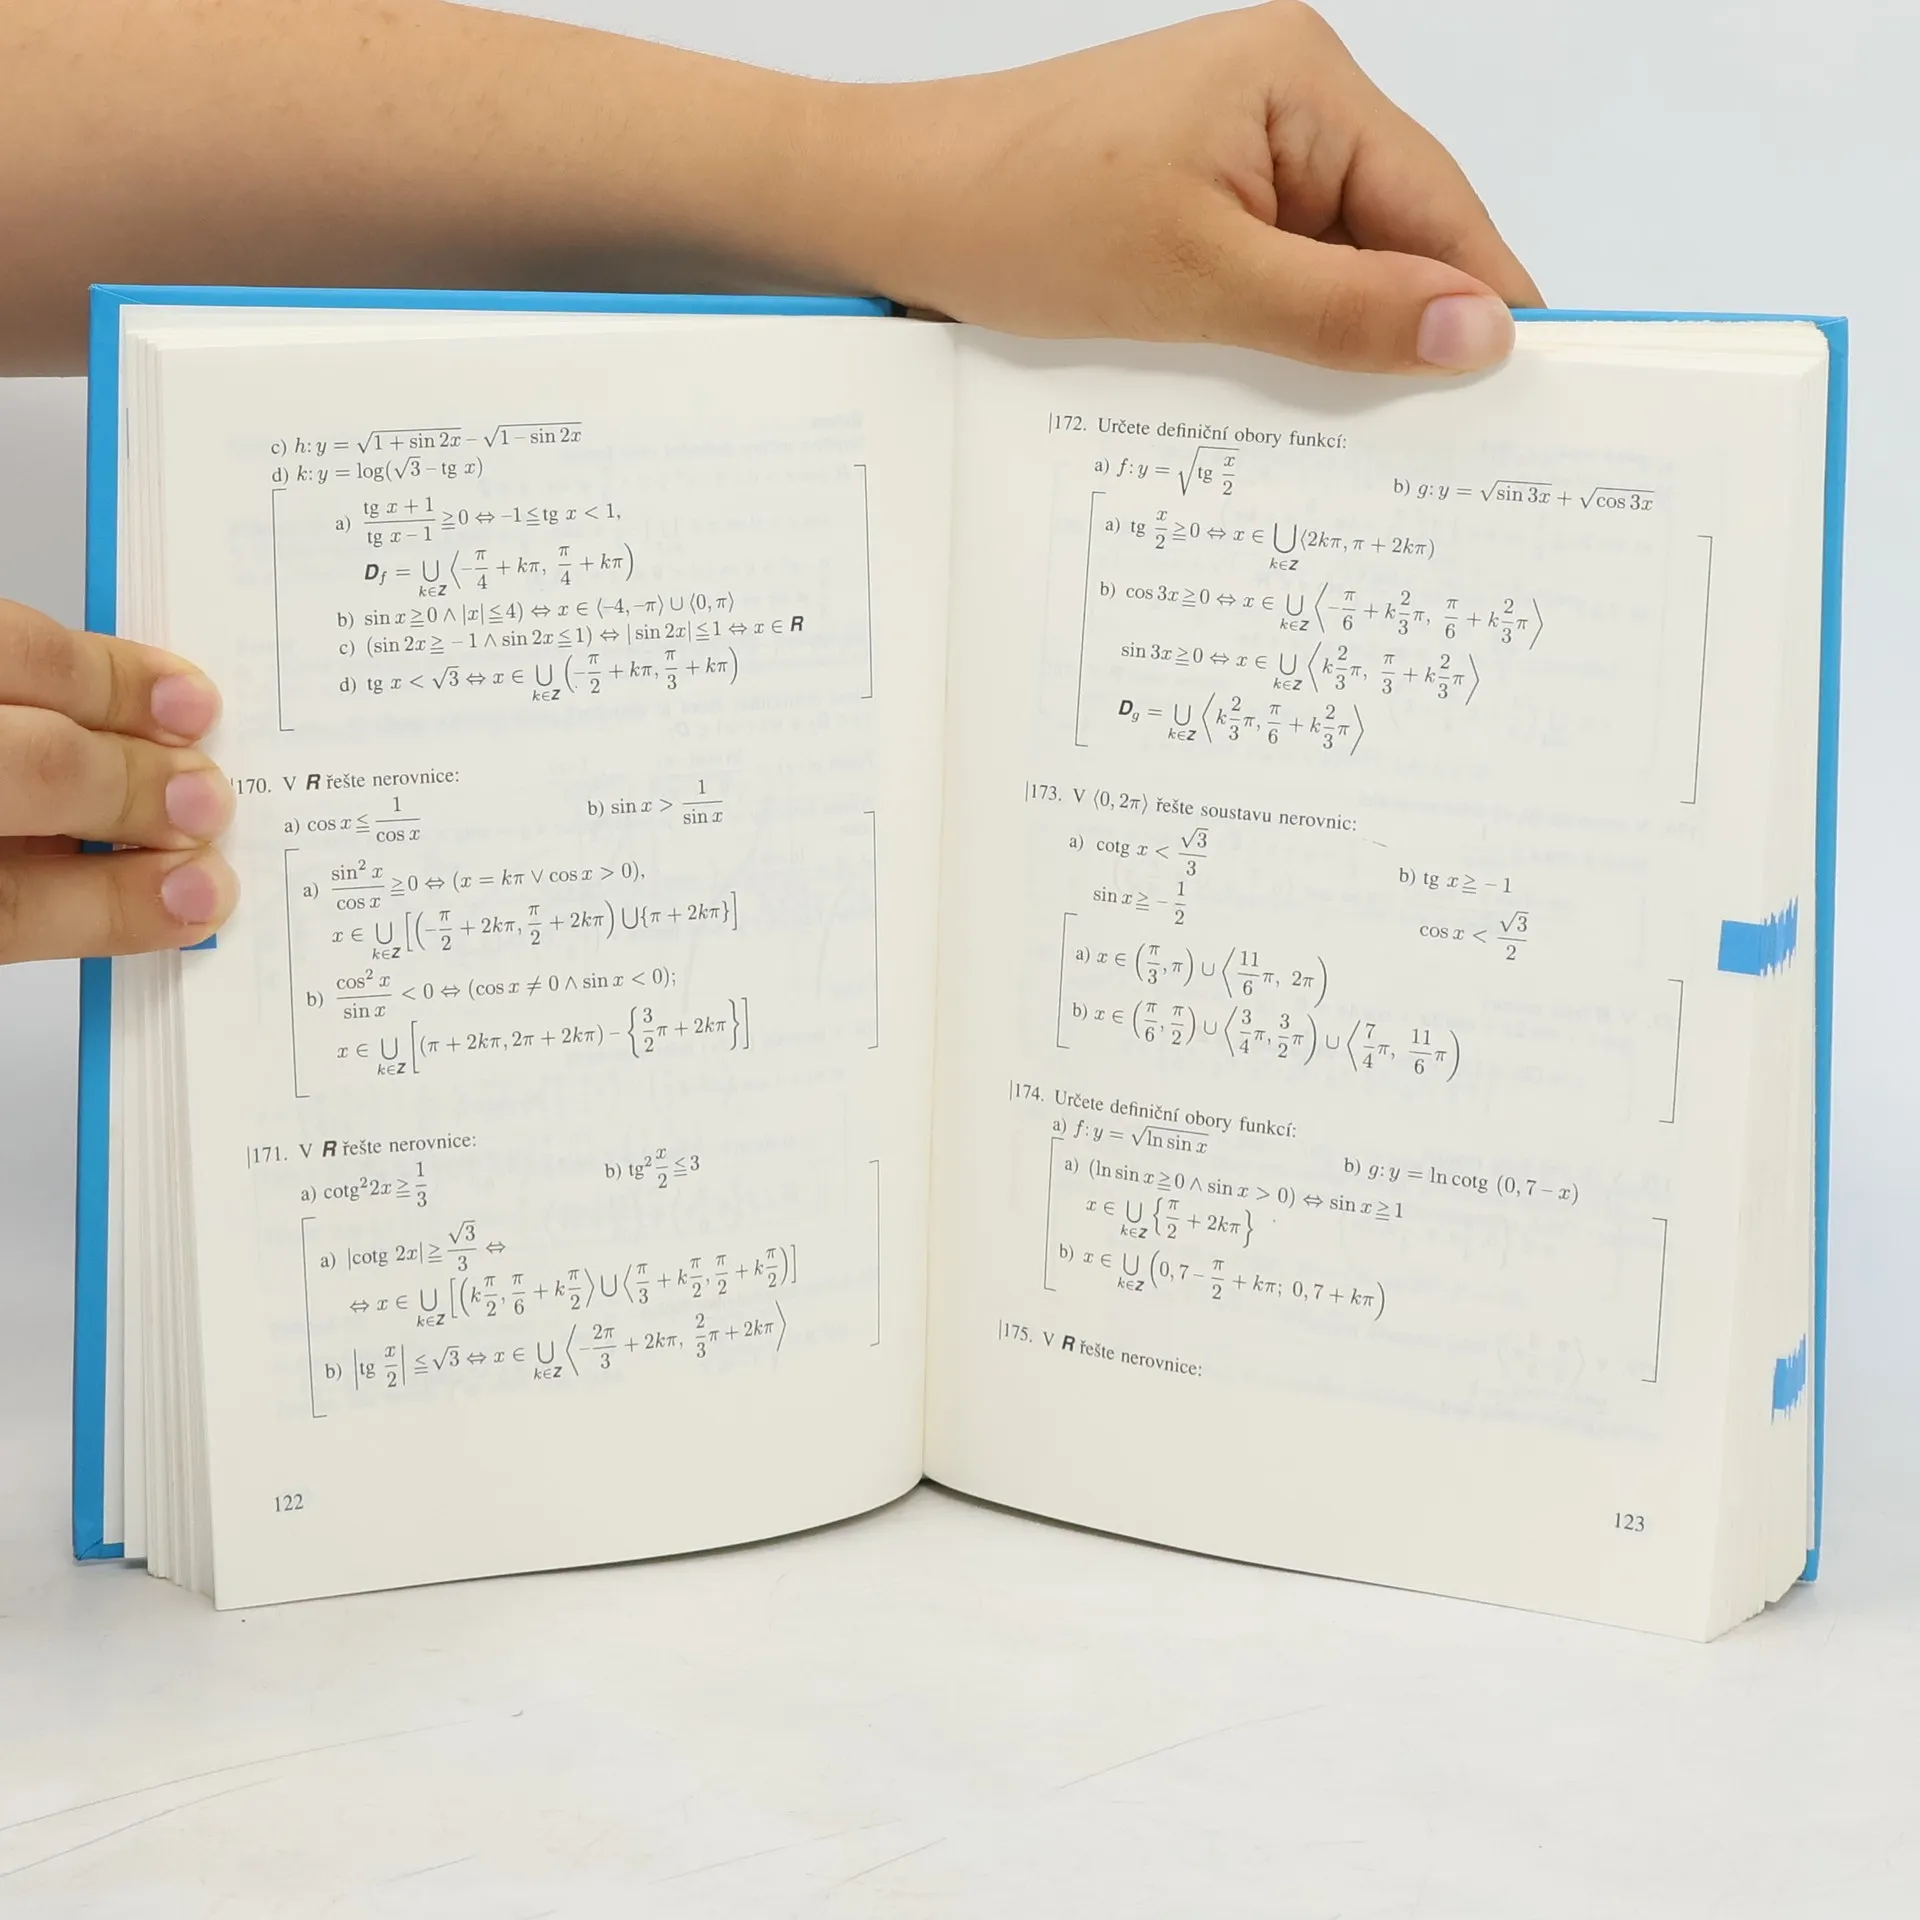 c) h: y = √(1 + sin 2x) − √(1 − sin 2x)
d) k: y = log(√3 − tg x)
a) (tg x + 1)/(tg x − 1) ≧ 0 ⇔ −1 ≦ tg x < 1,
D_f = ⋃_{k∈Z} ⟨−π/4 + kπ, π/4 + kπ)
b) sin x ≧ 0 ∧ |x| ≦ 4) ⇔ x ∈ ⟨−4, −π⟩ ∪ ⟨0, π⟩
c) (sin 2x ≧ −1 ∧ sin 2x ≦ 1) ⇔ |sin 2x| ≦ 1 ⇔ x ∈ R
d) tg x < √3 ⇔ x ∈ ⋃_{k∈Z} (−π/2 + kπ, π/3 + kπ)
|170. V R řešte nerovnice:
a) cos x ≦ 1/cos x b) sin x > 1/sin x
a) sin² x/cos x ≧ 0 ⇔ (x = kπ ∨ cos x > 0),
x ∈ ⋃_{k∈Z} [(−π/2 + 2kπ, π/2 + 2kπ) ∪ {π + 2kπ}]
b) cos² x/sin x < 0 ⇔ (cos x ≠ 0 ∧ sin x < 0);
x ∈ ⋃_{k∈Z} [(π + 2kπ, 2π + 2kπ) − {3/2 π + 2kπ}]
|171. V R řešte nerovnice:
a) cotg² 2x ≧ 1/3 b) tg² x/2 ≦ 3
a) |cotg 2x| ≧ √3/3 ⇔
⇔ x ∈ ⋃_{k∈Z} [(k π/2, π/6 + k π/2⟩ ∪ ⟨π/3 + k π/2, π/2 + k π/2)]
b) |tg x/2| ≦ √3 ⇔ x ∈ ⋃_{k∈Z} ⟨−2π/3 + 2kπ, 2/3 π + 2kπ⟩
122
|172. Určete definiční obory funkcí:
a) f: y = √(tg x/2) b) g: y = √(sin 3x) + √(cos 3x)
a) tg x/2 ≧ 0 ⇔ x ∈ ⋃_{k∈Z} ⟨2kπ, π + 2kπ)
b) cos 3x ≧ 0 ⇔ x ∈ ⋃_{k∈Z} ⟨−π/6 + k 2/3 π, π/6 + k 2/3 π⟩
sin 3x ≧ 0 ⇔ x ∈ ⋃_{k∈Z} ⟨k 2/3 π, π/3 + k 2/3 π⟩
D_g = ⋃_{k∈Z} ⟨k 2/3 π, π/6 + k 2/3 π⟩
|173. V ⟨0, 2π⟩ řešte soustavu nerovnic:
a) cotg x < √3/3 b) tg x ≧ −1
sin x ≧ −1/2 cos x < √3/2
a) x ∈ (π/3, π) ∪ ⟨11/6 π, 2π)
b) x ∈ (π/6, π/2) ∪ ⟨3/4 π, 3/2 π) ∪ ⟨7/4 π, 11/6 π)
|174. Určete definiční obory funkcí:
a) f: y = √(ln sin x) b) g: y = ln cotg (0,7 − x)
a) (ln sin x ≧ 0 ∧ sin x > 0) ⇔ sin x ≧ 1
x ∈ ⋃_{k∈Z} {π/2 + 2kπ}
b) x ∈ ⋃_{k∈Z} (0,7 − π/2 + kπ; 0,7 + kπ)
|175. V R řešte nerovnice:
123